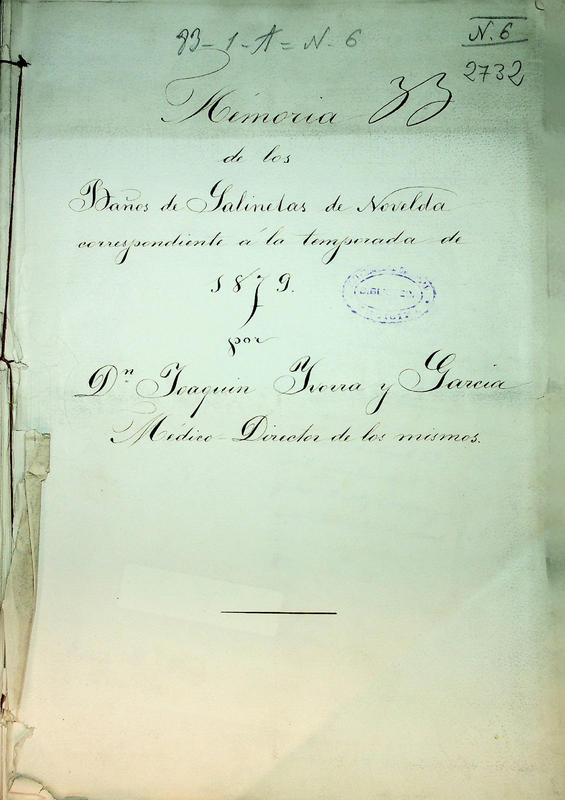 83-1-A=N-6
N. 6
2732
33
Memoria
de los
Baños de Salinetas de Novelda
correspondiente á la temporada de
1879.
por
Dn Joaquin Yvorra y Garcia
Médico-Director de los mismos.